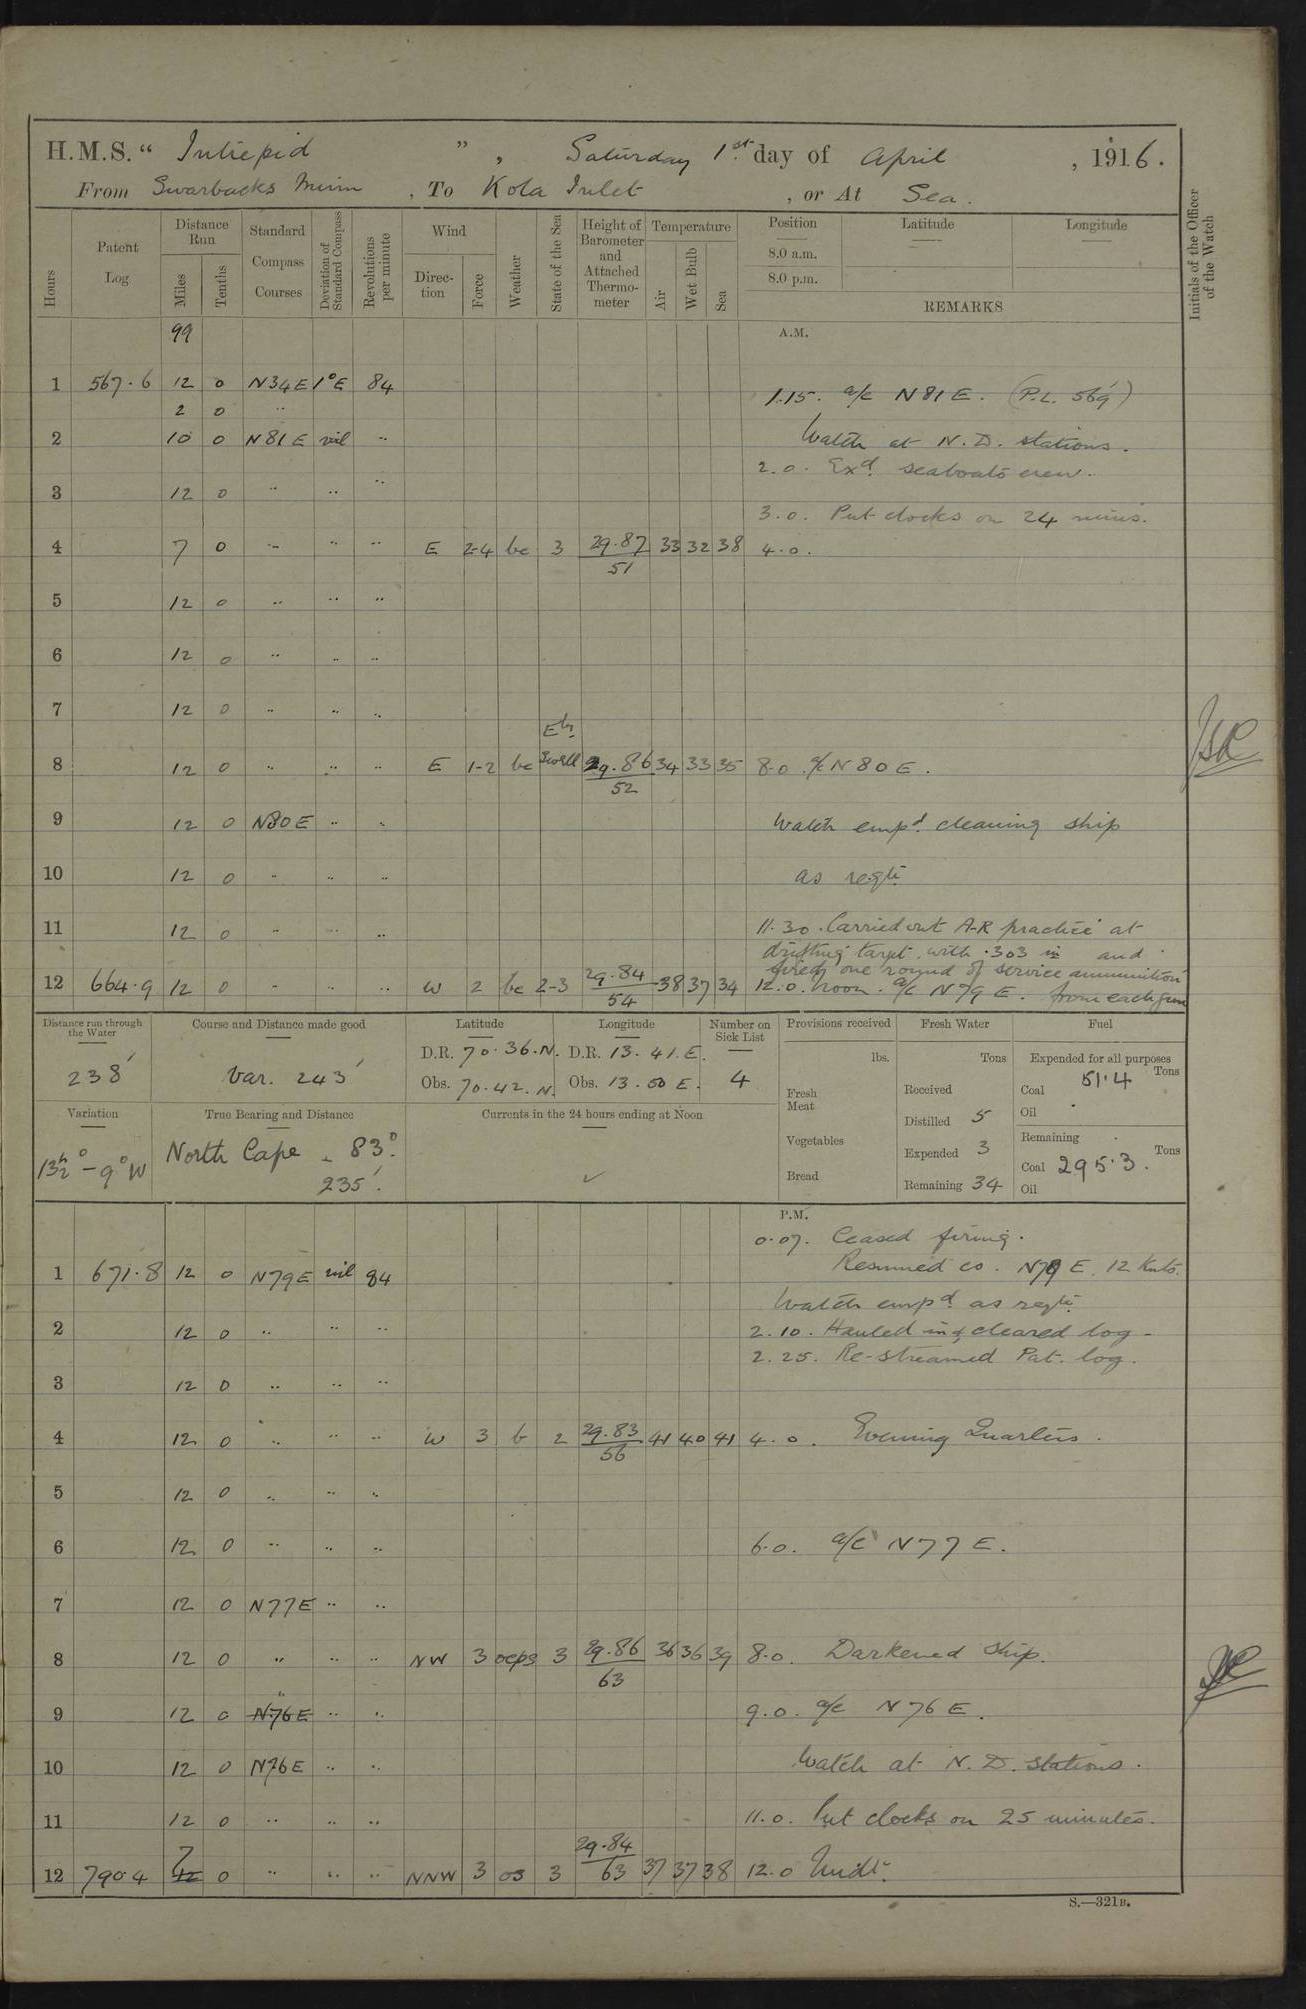 H.M.S. " Intrepid " , Saturday 1st day of April , 1916.
From Swarbacks Minn , To Kola Inlet , or At Sea.
Hours Patent Log Distance Run Miles Tenths Standard Compass Courses Deviation of Standard Compass Revolutions per minute Wind Direction Force Weather State of the Sea Height of Barometer and Attached Thermometer Temperature Air Wet Bulb Sea Position Latitude Longitude Initials of the Officer of the Watch
8.0 a.m.
8.0 p.m.
REMARKS
99 A.M.
1 567.6 12 0 N34E 1°E 84 1.15. a/c N81E. (P.L. 569')
2 0 "
2 10 0 N81E nil " Watch at N.D. stations.
2.0. Exd. seaboats crew.
3 12 0 " " "
3.0. Put clocks on 24 mins.
4 7 0 " " " E 2-4 bc 3 29.87 33 32 38 4.0.
51
5 12 0 " " "
6 12 0 " " "
7 12 0 " " "
Ely.
8 12 0 " " " E 1-2 bc Swell 29.86 34 33 35 8.0 a/c N80E.
52
9 12 0 N80E " " Watch empd. cleaning ship
10 12 0 " " " as reqte
11 12 0 " " " 11.30. Carried out A-R practice at
drifting target with .303 in and
fired one round of service ammunition
12 664.9 12 0 " " " W 2 bc 2-3 29.84 38 37 34 12.0. Noon. a/c N79E. from each gun
54
Distance run through the Water Course and Distance made good Latitude Longitude Number on Sick List Provisions received Fresh Water Fuel
D.R. 70.36.N. D.R. 13.41.E. lbs. Tons Expended for all purposes
238' Var. 243' Obs. 70.42.N. Obs. 13.50 E. 4 Fresh Meat Received Coal 51.4 Tons
Variation True Bearing and Distance Currents in the 24 hours ending at Noon Distilled 5 Oil
13½° - 9°W North Cape - 83°. Vegetables Expended 3 Remaining
235'. Bread Remaining 34 Coal 295.3. Tons
Oil
P.M.
0.07. Ceased firing.
1 671.8 12 0 N79E nil 84 Resumed co. N79E. 12 Knts.
Watch empd. as reqte
2 12 0 " " " 2.10. Hauled in & cleared log -
2.25. Re-streamed Pat. log.
3 12 0 " " "
4 12 0 " " " W 3 b 2 29.83 41 40 41 4.0. Evening Quarters.
56
5 12 0 " " "
6 12 0 " " " 6.0. a/c N77E.
7 12 0 N77E " "
8 12 0 " " " NW 3 ocps 3 29.86 36 36 39 8.0. Darkened ship.
63
"
9 12 0 N76E " " 9.0. a/c N76E.
10 12 0 N76E " " Watch at N.D. stations.
11 12 0 " " " 11.0. Put clocks on 25 minutes.
7
12 790.4 12 0 " " " NNW 3 os 3 29.84 37 37 38 12.0 Midt.
63
S.—321B.